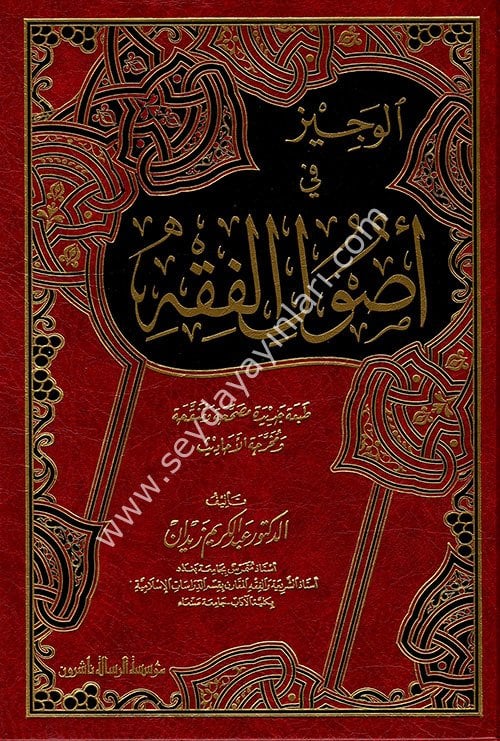 الوجيز
في
أصول الفقه
طبعة جديدة مصححة منقحة
ومخرجة الأحاديث
تأليف
الدكتور عبد الكريم زيدان
أستاذ متمرس بجامعة بغداد
أستاذ الشريعة والفقه المقارن بقسم الدراسات الإسلامية
بكلية الآداب - جامعة صنعاء
مؤسسة الرسالة ناشرون
www.seydayayinlari.com